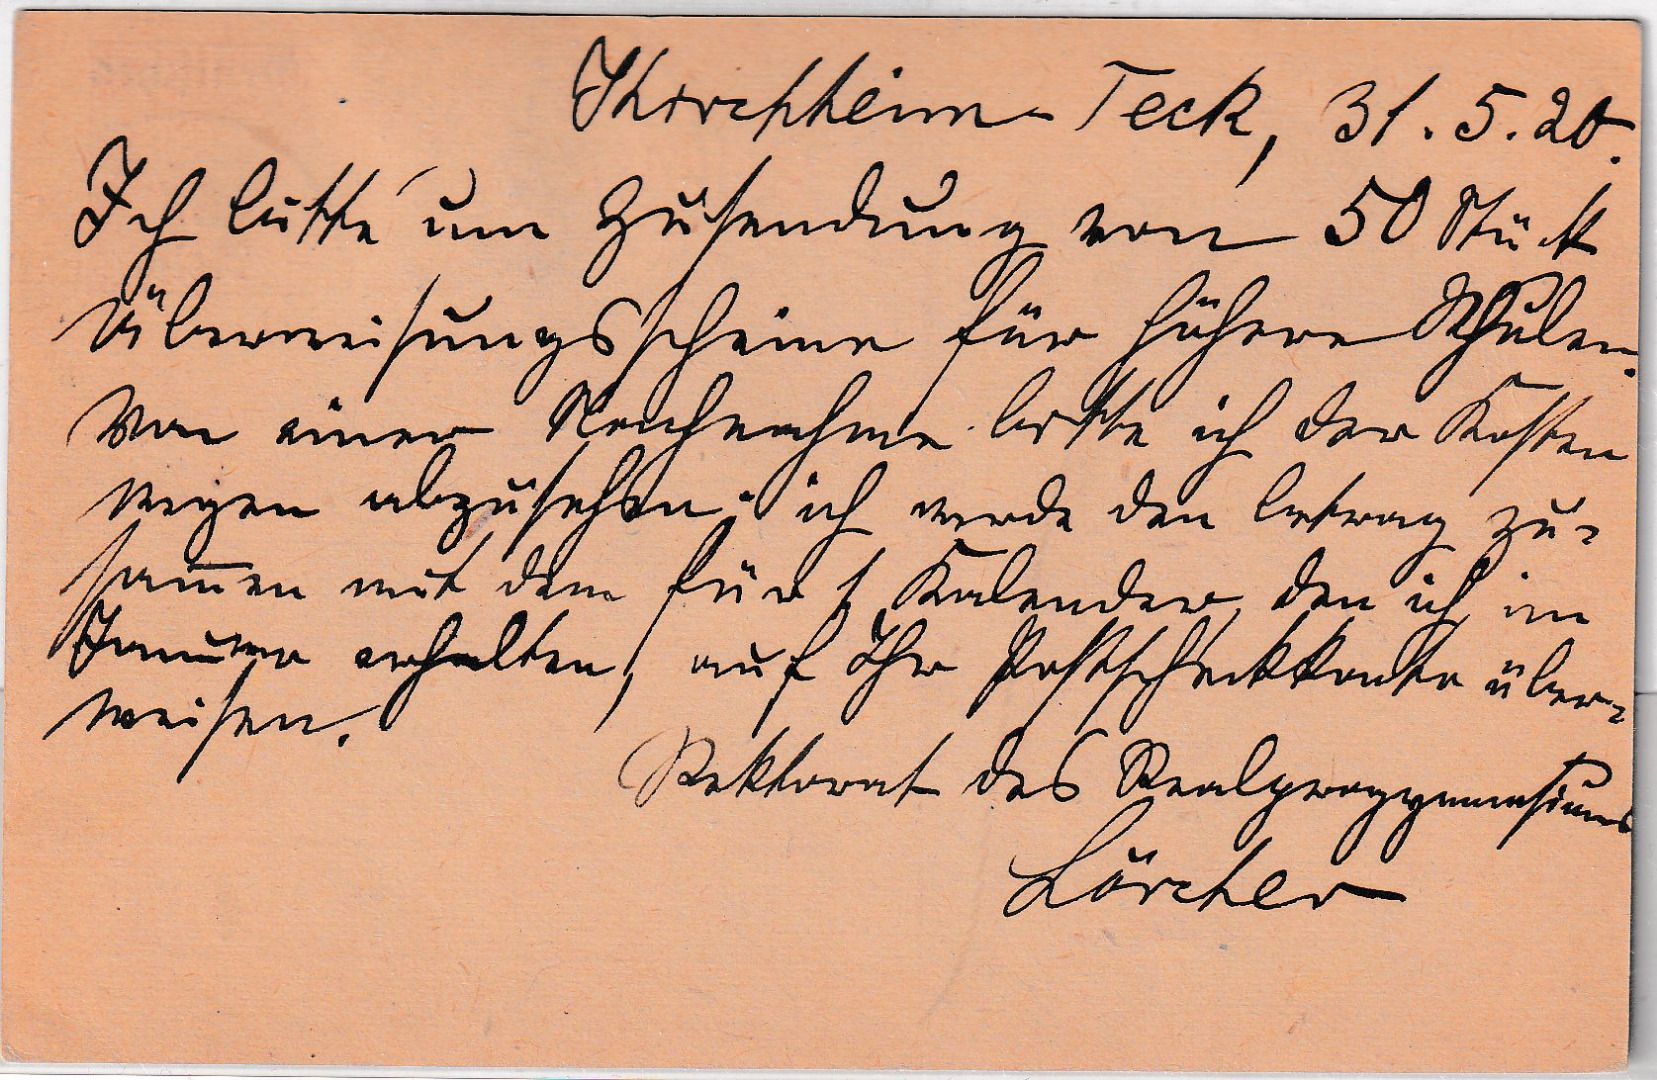 Kirchheim-Teck, 31. 5. 20.
Ich bitte um Zusendung von 50 Stück
Überweisungsscheine für höhere Schulen.
Von einer Nachnahme bitte ich der Kosten
wegen abzusehen; ich werde den Betrag zu-
sammen mit dem für 1 Kalender, den ich im
Januar erhalten, auf Ihr Postscheckkonto über-
weisen.
Rektorat des Realprogymnasiums
Lörcher